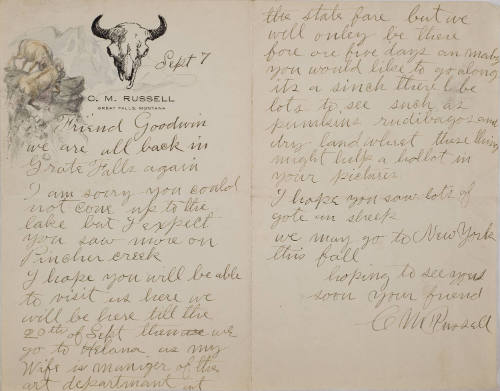 Sept 7
C. M. RUSSELL
GREAT FALLS, MONTANA
Friend Goodwin
we are all back in
Grate Falls again
I am sorry you could
not come up to the
lake but I expect
you saw more on
Pincher creek
I hope you will be able
to visit us here we
will be here till the
20th of Sept then we
go to Helana as my
Wife is maniger of the
art department at
the state fare but we
will onley be there
fore ore five days an maby
you would like to go along
its a sinch there l be
lots to see such as
pumkins rudibagos and
dry land wheat these things
might help a hollot in
your pictures
I hope you saw lots of
gote an sheep
we may go to New York
this fall
hoping to see you
soon your friend
C M Russell